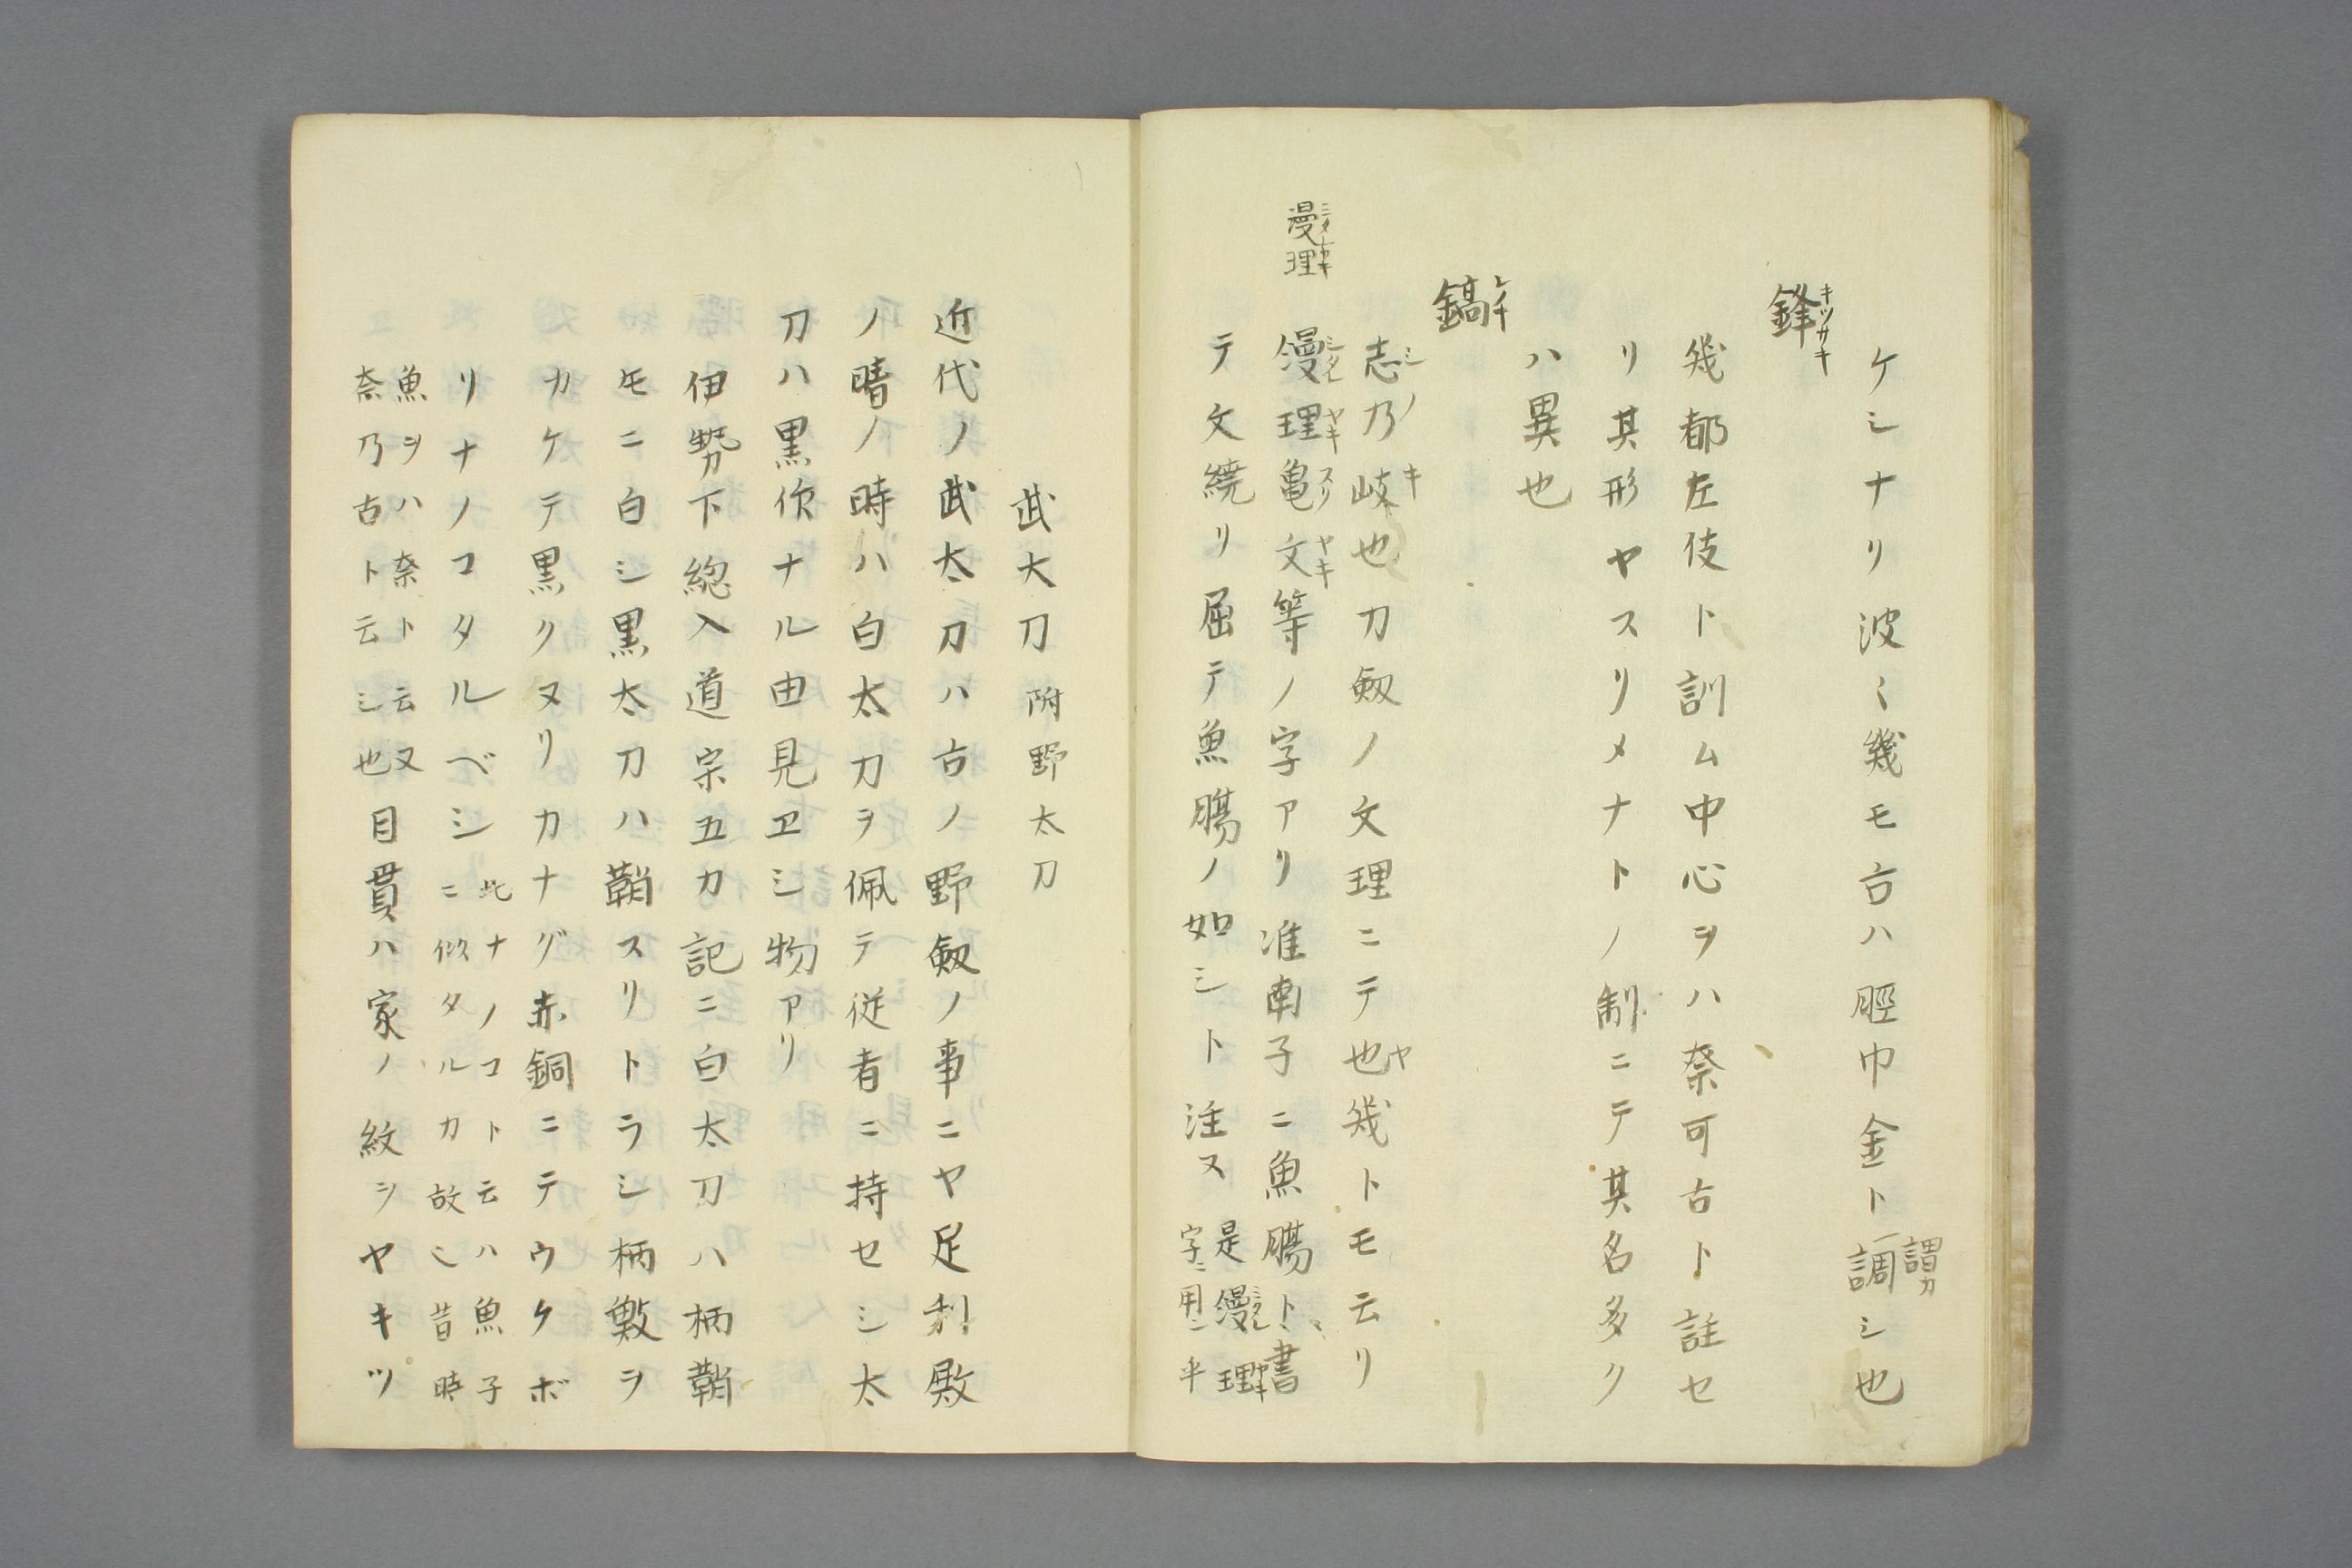 ケシナリ波〻幾モ古ハ脛巾金ト調シ也
謂カ
鋒
キツサキ
幾都左伎ト訓ム中心ヲハ奈可古ト註セ
リ其形ヤスリメナトノ制ニテ其名多ク
ハ異也
鎬
シノキ
志乃岐也刀劔ノ文理ニテ也幾トモ云リ
漫理
縵理亀文等ノ字アリ准南子ニ魚腸ト書
テ文繞リ屈テ魚腸ノ如シト注ス
是縵理
字ニ用ン乎
武大刀 附野太刀
近代ノ武太刀ハ古ノ野劔ノ事ニヤ足利殿
ノ晴ノ時ハ白太刀ヲ佩テ従者ニ持セシ太
刀ハ黒作ナル由見ヱシ物アリ
伊勢下総入道宗五カ記ニ白太刀ハ柄鞘
モニ白シ黒太刀ハ鞘スリトラシ柄
ヲ
カケテ黒クヌリカナグ赤銅ニテウケボ
リナノコタルベシ
此ナノコト云ハ魚子
ニ似タルカ故〻昔時
魚ヲハ奈ト云又
奈乃古ト云シ也
目貫ハ家ノ紋ヲヤキツ